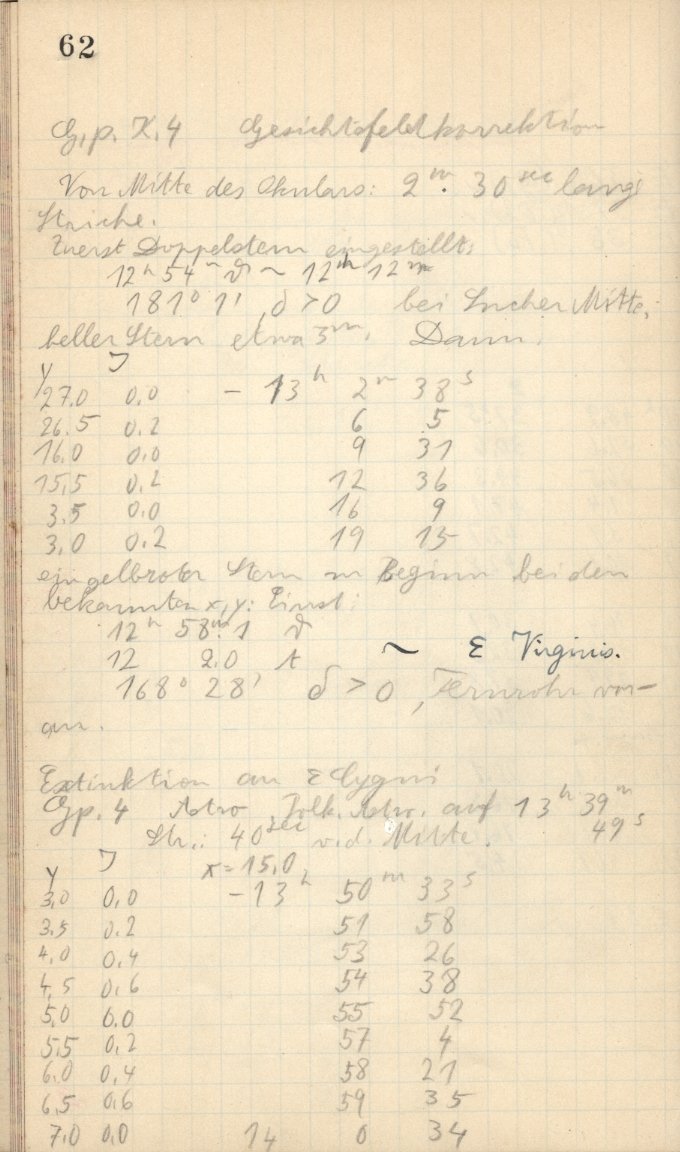 62
G.p. X.4 Gesichtsfeldkorrektion
Von Mitte des Okulars: 2ᵐ. 30ˢᵉᶜ lang
Striche.
Zuerst Doppelstern eingestellt:
12ʰ 54ᵐ ϑ ~ 12ʰ 12ᵐ
181° 1' δ > 0 bei Sucher Mitte,
heller Stern etwa 3ᵐ. Dann:
y J
27.0 0.0 - 13ʰ 2ᵐ 38ˢ
26.5 0.2 6 5
16.0 0.0 9 31
15.5 0.2 12 36
3.5 0.0 16 9
3.0 0.2 19 15
ein gelbroter Stern zu Beginn bei den
bekannten x, y: Einst:
12ʰ 58ᵐ.1 ϑ
12 2.0 t ~ ε Virginis.
168° 28' δ > 0, Fernrohr vor-
an.
Extinktion an ε Cygni
Gp. 4 Astro, Astro. auf 13ʰ 39ᵐ
Str.: 40ˢᵉᶜ v.d. Mitte. 49ˢ
y J x = 15.0
3.0 0.0 - 13ʰ 50ᵐ 33ˢ
3.5 0.2 51 58
4.0 0.4 53 26
4.5 0.6 54 38
5.0 0.0 55 52
5.5 0.2 57 4
6.0 0.4 58 21
6.5 0.6 59 35
7.0 0.0 14 0 34